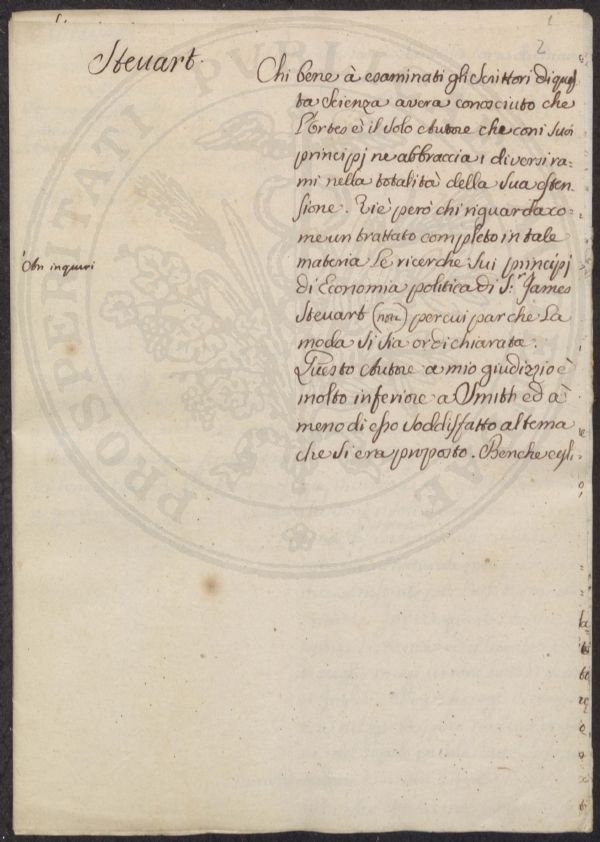 2
Steuart.
Chi bene à esaminati gli Scrittori di ques
ta Scienza avera conosciuto che
l'Ortes è il solo Autore che con i suoi
principj ne abbraccia i diversi ra=
mi nella totalità della sua esten=
sione. Vi è però chi riguarda co=
me un trattato completo in tale
materia Le ricerche sui principj
di Economia politica di S.r James
Steuart (nota) per cui par che la
moda si sia or dichiarata.
Questo Autore a mio giudizio è
molto inferiore a Smith ed à
meno di esso soddisfatto al tema
che si era proposto. Benche egli
An inquiri
PROSPERITATI PUBLICAE